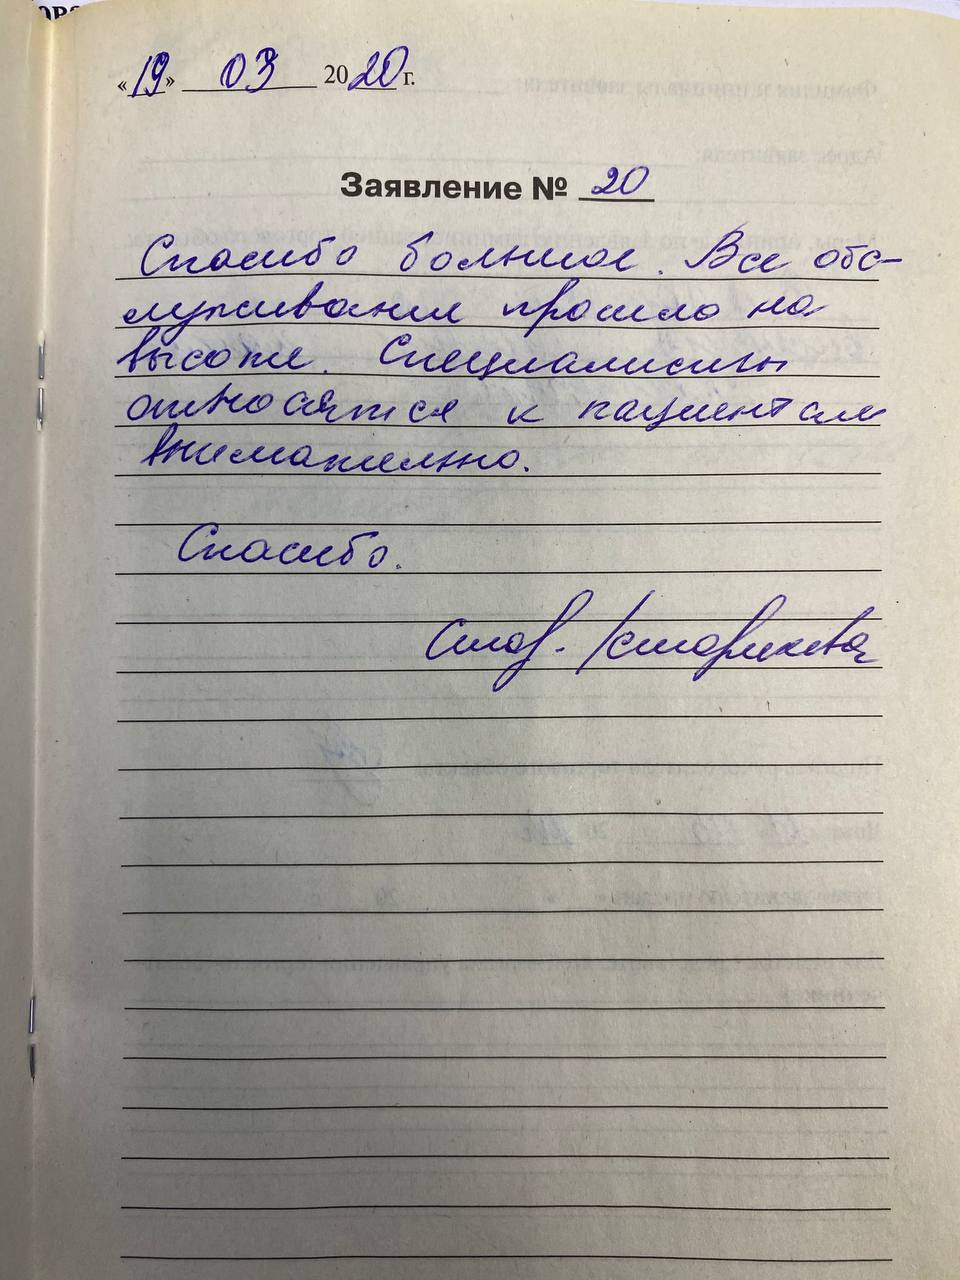 «19» 03 2020 г.
Заявление № 20
Спасибо большое. Все обс-
луживание прошло на
высоте. Специалисты
относятся к пациентам
внимательно.
Спасибо.